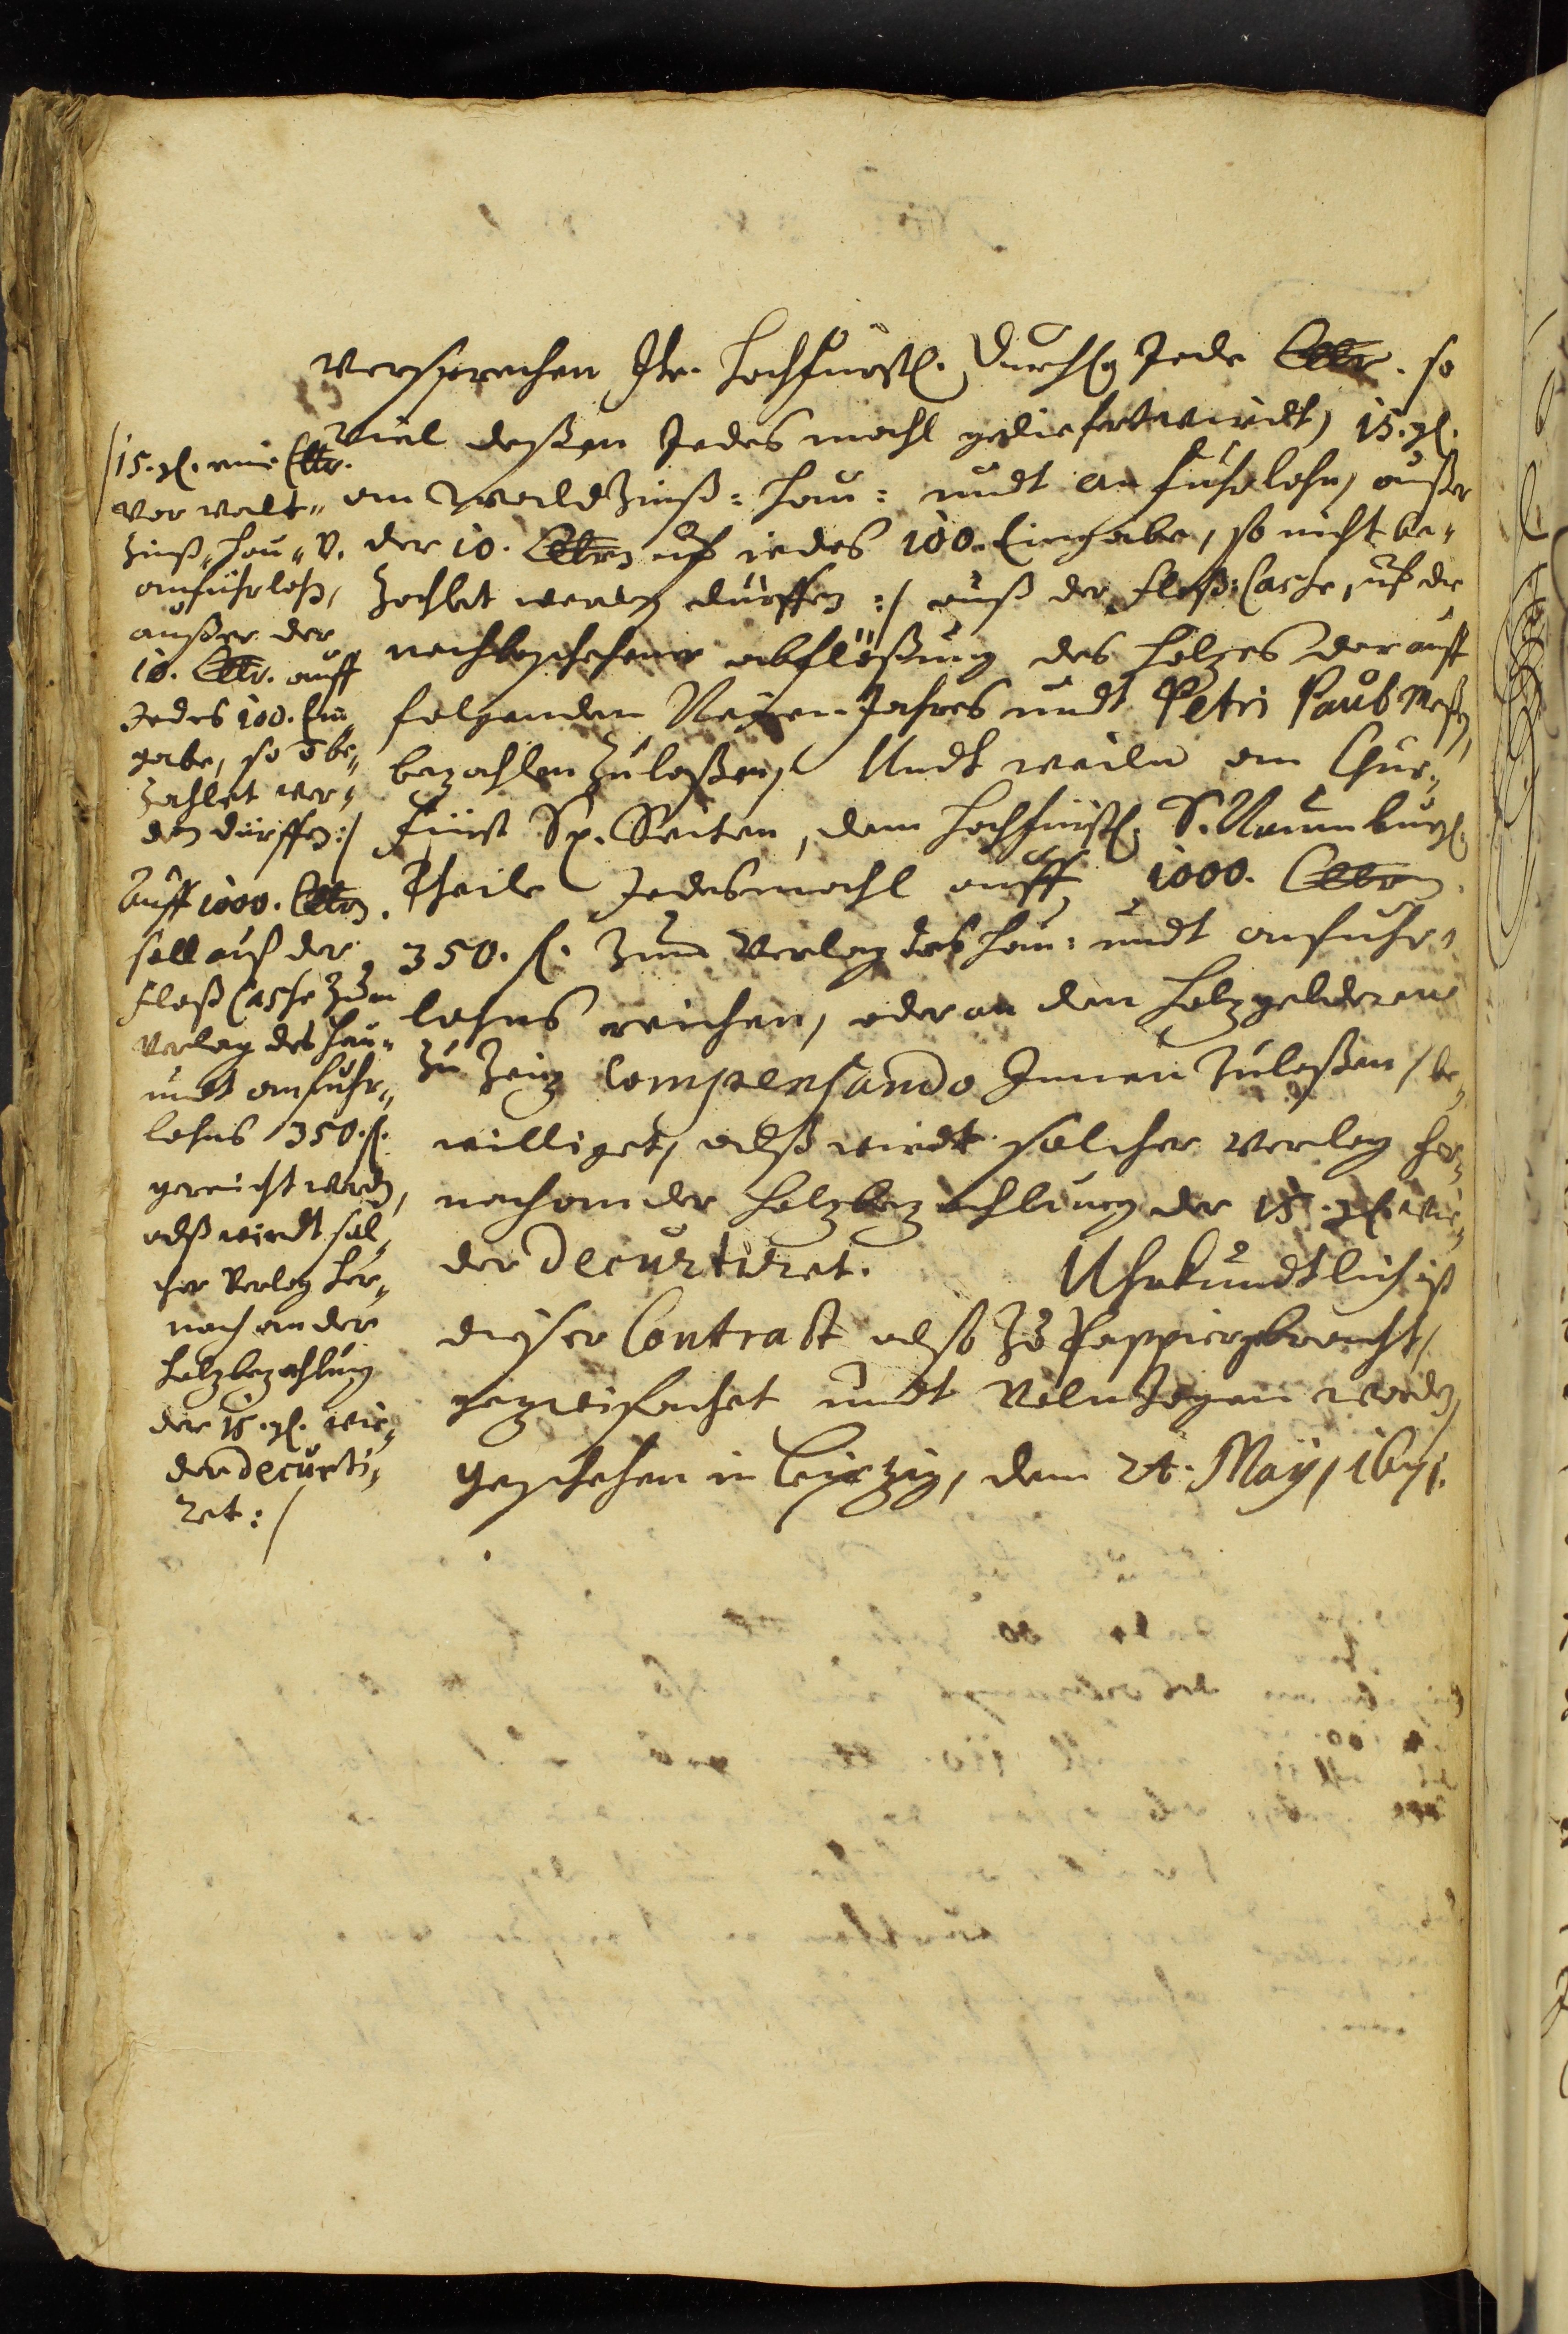 versprechen Ihr. Hochfürstl. Durchl. Jede Clftr. so
viel deßen Jedes mahl geliefert wirdt, 15. gl.
am Waldt Zinß: Hau: undt anfuhrlohn, außer
der 10. Clftrn uf iedes 100. Eingabe, so nicht be„
zahlet werden dürffen :/ auß der Floß: Casse, uf die
nachbeschehener abflößung des Holzes darauff
folgenden Neyen Jahres undt Petri Pauls Meß,
bezahlen zulaßen, Undt weiln am Chur„
Fürst Sr. Seiten, dem Hochfürstl. S. Naumburgl.
Theile Jedesmahl auff 1000. Clftrn.
350. fl. Zum Verlag des Hau: undt anfuhr„
lohns reichen, oder an den Holzgeldern
zu Zeiz compensando Innen zulaßen, be„
williget, alß wirdt solcher Verlag her„
nach an der Holzbezahlung der 15. gl. wie„
der decurtiret. Uhrkundtlich ist
dieser Contract also Zu Pappier gebracht,
gezweifachet undt Volnzogen worden,
Geschehen in Leipzig, den 24. Maÿ, 1671.

/15. gl. eine Clftr.
vor Waldt„
Zinß„ Hau„ V.
anführlohn,
außer der
10. Clftr. auff
Jedes 100. Ein„
gabe, so be„
zahlet wer„
den dürffen :/
Auff 1000. Clftrn.
soll auß der
Floß Casse Zum
Verlag des Hau„
undt anfuhr„
lohns 350. fl.
gereicht werden,
alß wirdt sol„
cher Verlag her„
nach an der
Holzbezahlung
der 15. gl. wie„
der decurti„
ret :/